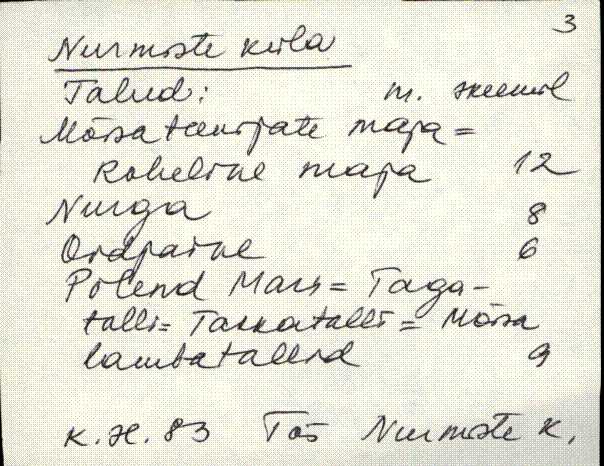 3
Nurmste küla
Talud: m. skeemil
Mõisateenijate maja =
Roheline maja 12
Nurga 8
Ordpaine 6
Põlend Mars = Taga-
talli = Taskatalli = Mõisa
lambatallid 9
K. H. 83 Tõs Nurmste k.